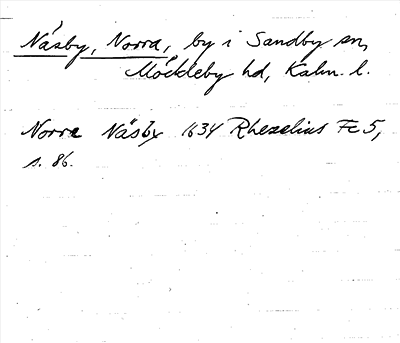 Näsby, Norra, by i Sandby sn,
Möckleby hd, Kalm. l.
Norra Näsby 1634 Rhezelius Fc5,
s. 86.